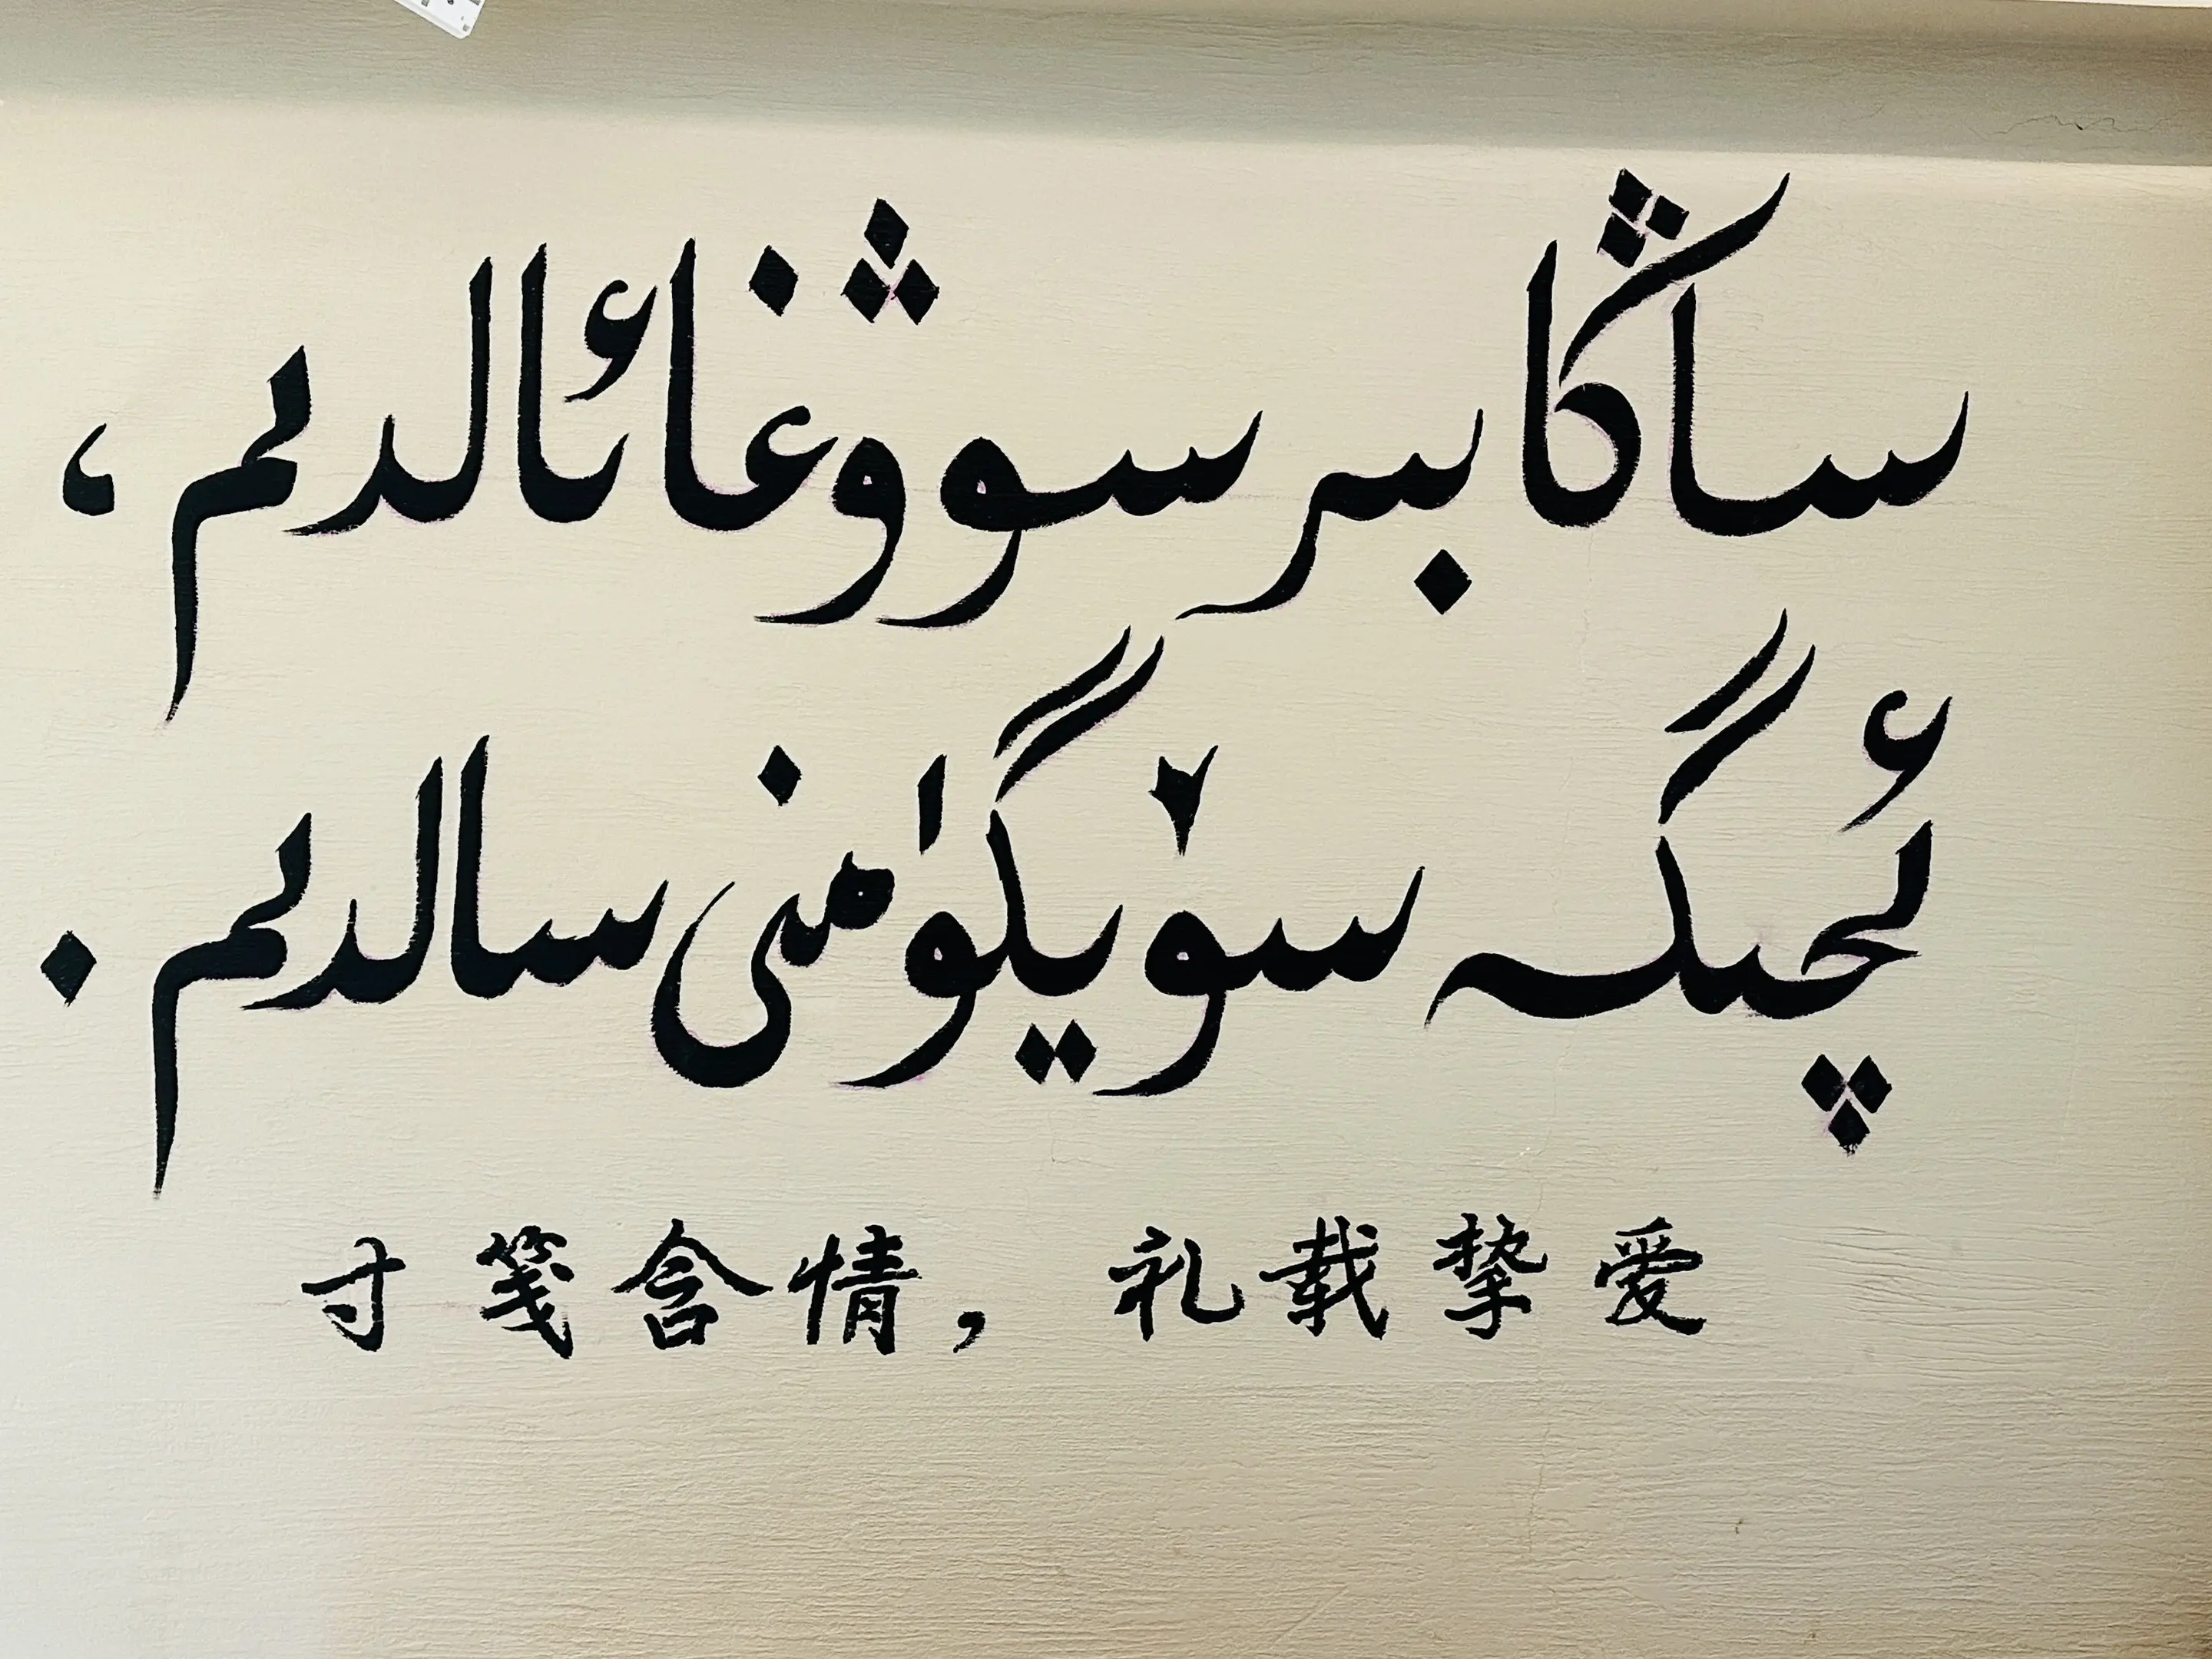 ساڭا بىر سوۋغا ئالدىم،
ئىچىگە سۆيگۈمنى سالدىم.
寸笺含情，礼载挚爱